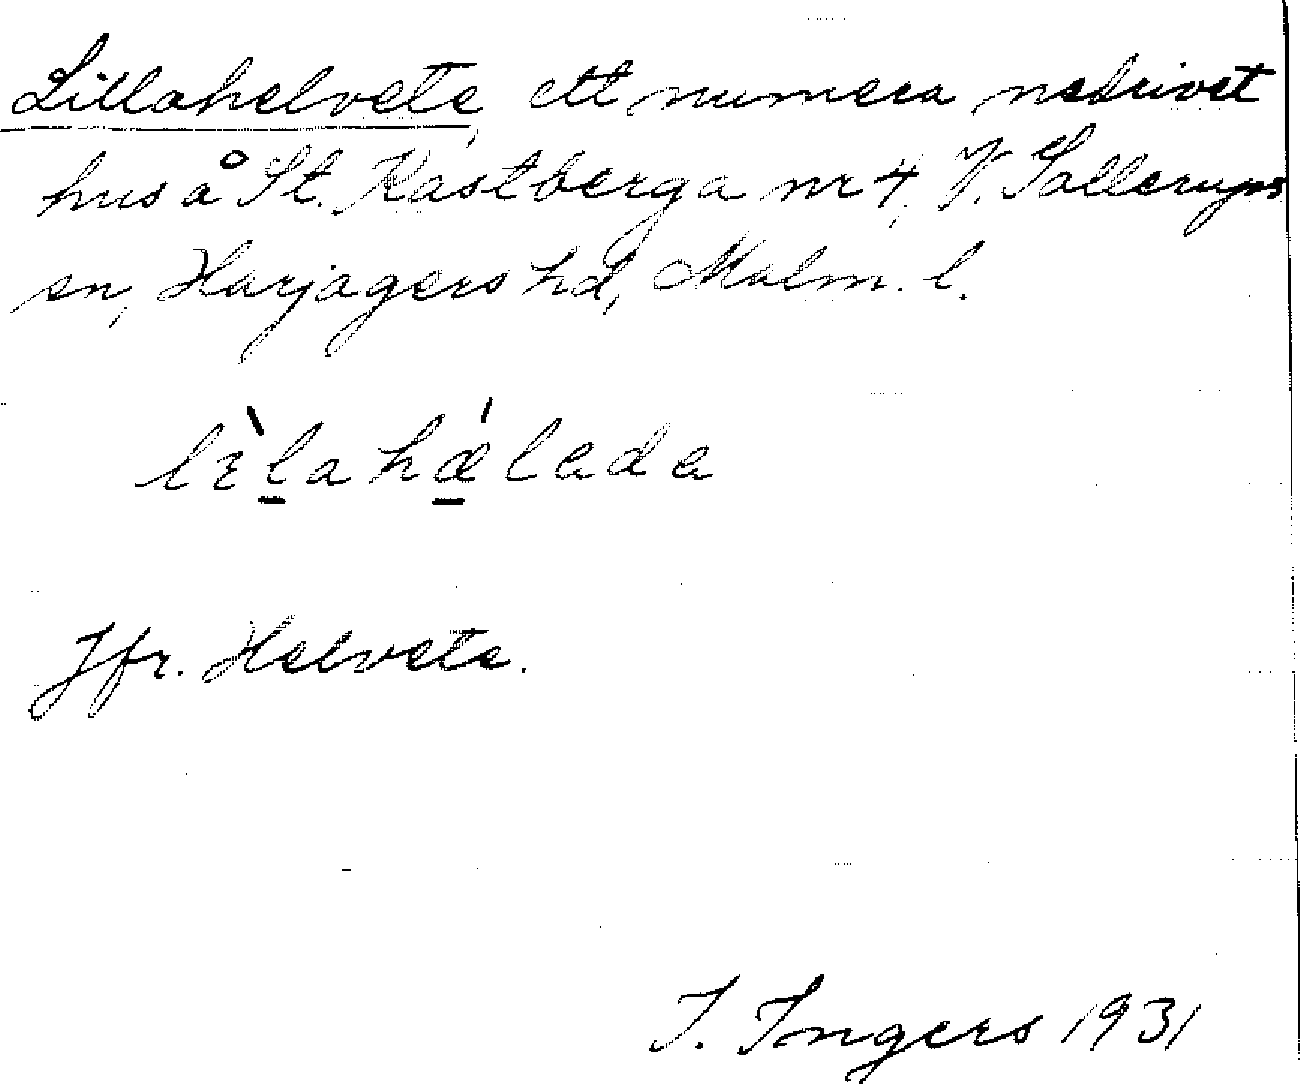 Lillahelvete, ett numera nedrivet
hus å St. Kastberga nr 4, V. Sallerups
sn, Harjagers hd, Malm. l.
lɛ̀l̲ahǽ̲lada
Jfr. Helvete.
I. Ingers 1931